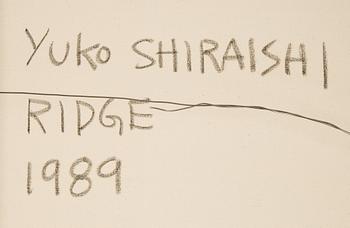 Yuko SHIRAISHI
RIDGE
1989